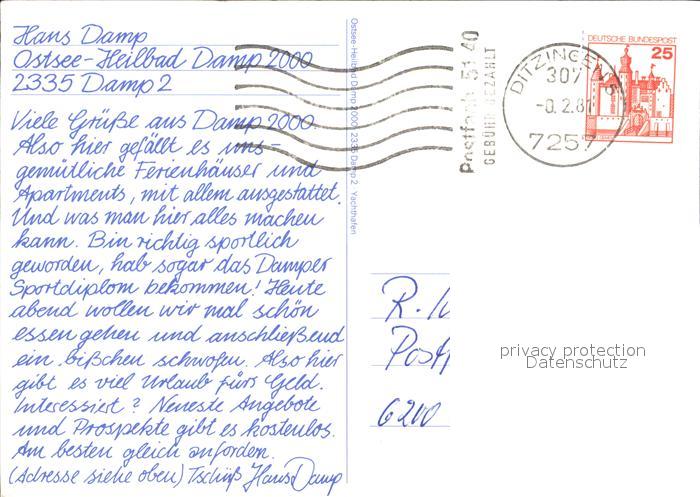 Hans Damp
Ostsee-Heilbad Damp 2000
2335 Damp 2
Viele Grüße aus Damp 2000.
Also hier gefällt es uns -
gemütliche Ferienhäuser und
Apartments, mit allem ausgestattet.
Und was man hier alles machen
kann. Bin richtig sportlich
geworden, hab sogar das Damper
Sportdiplom bekommen! Heute
abend wollen wir mal schön
essen gehen und anschließend
ein bißchen schwofen. Also hier
gibt es viel Urlaub für's Geld.
Interessiert? Neueste Angebote
und Prospekte gibt es kostenlos.
Am besten gleich anfordern.
(Adresse siehe oben) Tschüß Hans Damp
Ostsee-Heilbad Damp 2000, 2335 Damp 2 Yachthafen
Postfach 5140
GEBÜHR BEZAHLT
DITZINGEN
307
-0.2.81
7257
DEUTSCHE BUNDESPOST
25
R.
Post
6200
privacy protection
Datenschutz